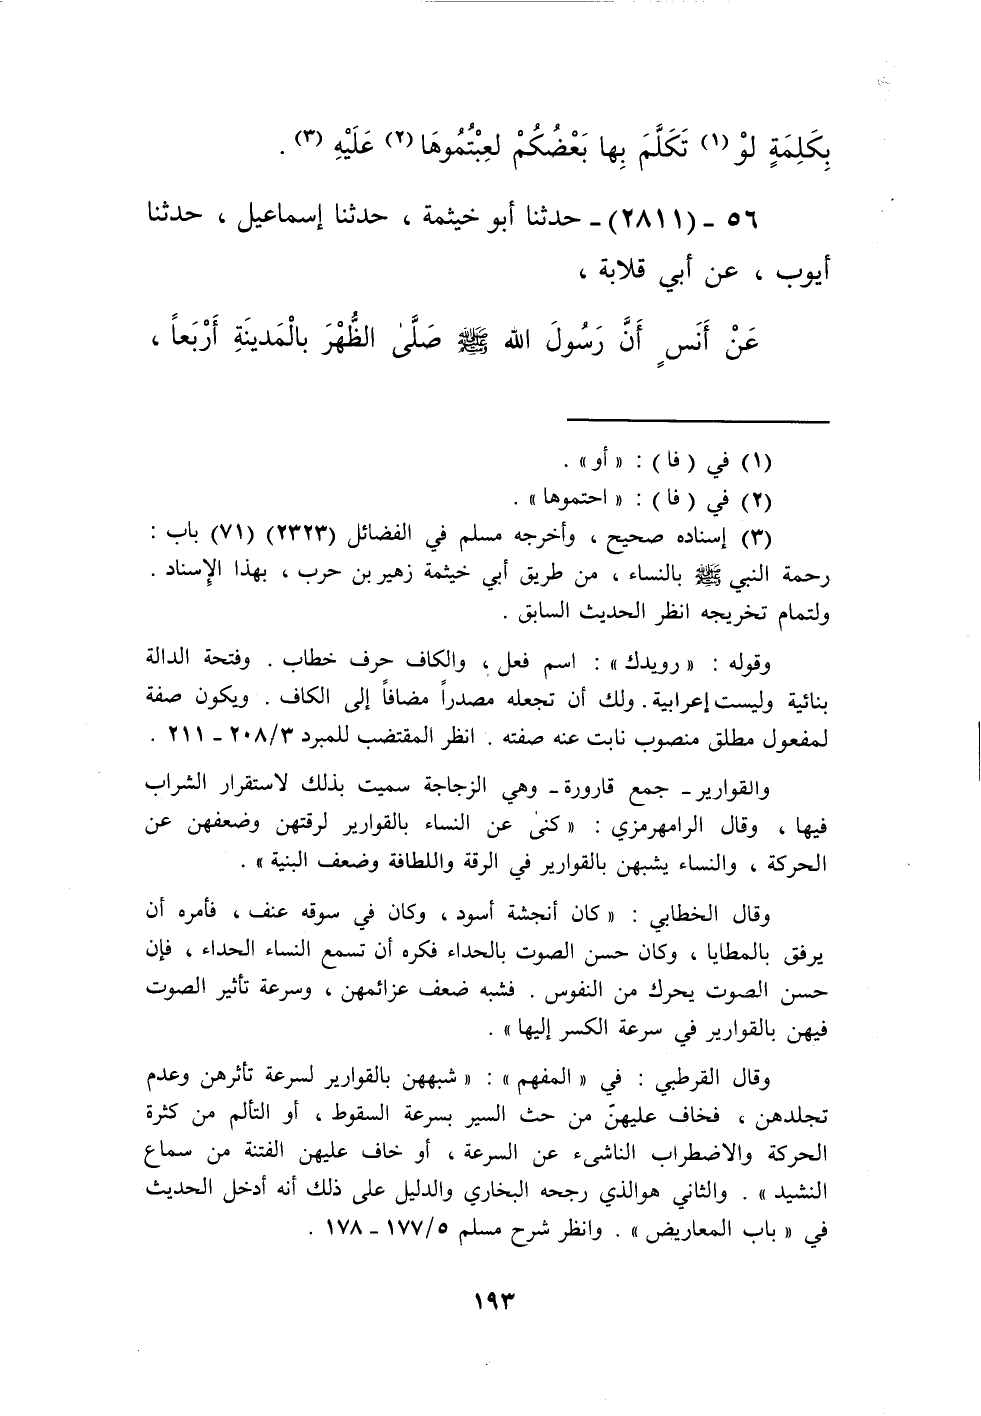 بِكَلِمَةٍ لَوْ (١) تَكَلَّمَ بِها بَعْضُكُمْ لعِبْتُمُوهَا (٢) عَلَيْهِ (٣) .
٥٦ ـ (٢٨١١) ـ حدثنا أبو خيثمة ، حدثنا إسماعيل ، حدثنا
أيوب ، عن أبي قلابة ،
عَنْ أَنَسٍ أَنَّ رَسُولَ الله ﷺ صَلَّىٰ الظُّهْرَ بالْمَدينَةِ أَرْبَعاً ،
(١) في ( فا ) : « أو » .
(٢) في ( فا ) : « احتموها » .
(٣) إسناده صحيح ، وأخرجه مسلم في الفضائل (٢٣٢٣) (٧١) باب :
رحمة النبي ﷺ بالنساء ، من طريق أبي خيثمة زهير بن حرب ، بهذا الإسناد .
ولتمام تخريجه انظر الحديث السابق .
وقوله : « رويدك » : اسم فعل ، والكاف حرف خطاب . وفتحة الدالة
بنائية وليست إعرابية . ولك أن تجعله مصدراً مضافاً إلى الكاف . ويكون صفة
لمفعول مطلق منصوب نابت عنه صفته . انظر المقتضب للمبرد ٢٠٨/٣ ـ ٢١١ .
والقوارير ـ جمع قارورة ـ وهي الزجاجة سميت بذلك لاستقرار الشراب
فيها ، وقال الرامهرمزي : « كنىٰ عن النساء بالقوارير لرقتهن وضعفهن عن
الحركة ، والنساء يشبهن بالقوارير في الرقة واللطافة وضعف البنية » .
وقال الخطابي : « كان أنجشة أسود ، وكان في سوقه عنف ، فأمره أن
يرفق بالمطايا ، وكان حسن الصوت بالحداء فكره أن تسمع النساء الحداء ، فإن
حسن الصوت يحرك من النفوس . فشبه ضعف عزائمهن ، وسرعة تأثير الصوت
فيهن بالقوارير في سرعة الكسر إليها » .
وقال القرطبي : في « المفهم » : « شبههن بالقوارير لسرعة تأثرهن وعدم
تجلدهن ، فخاف عليهنّ من حث السير بسرعة السقوط ، أو التألم من كثرة
الحركة والاضطراب الناشىء عن السرعة ، أو خاف عليهن الفتنة من سماع
النشيد » . والثاني هوالذي رجحه البخاري والدليل على ذلك أنه أدخل الحديث
في « باب المعاريض » . وانظر شرح مسلم ١٧٧/٥ ـ ١٧٨ .
١٩٣